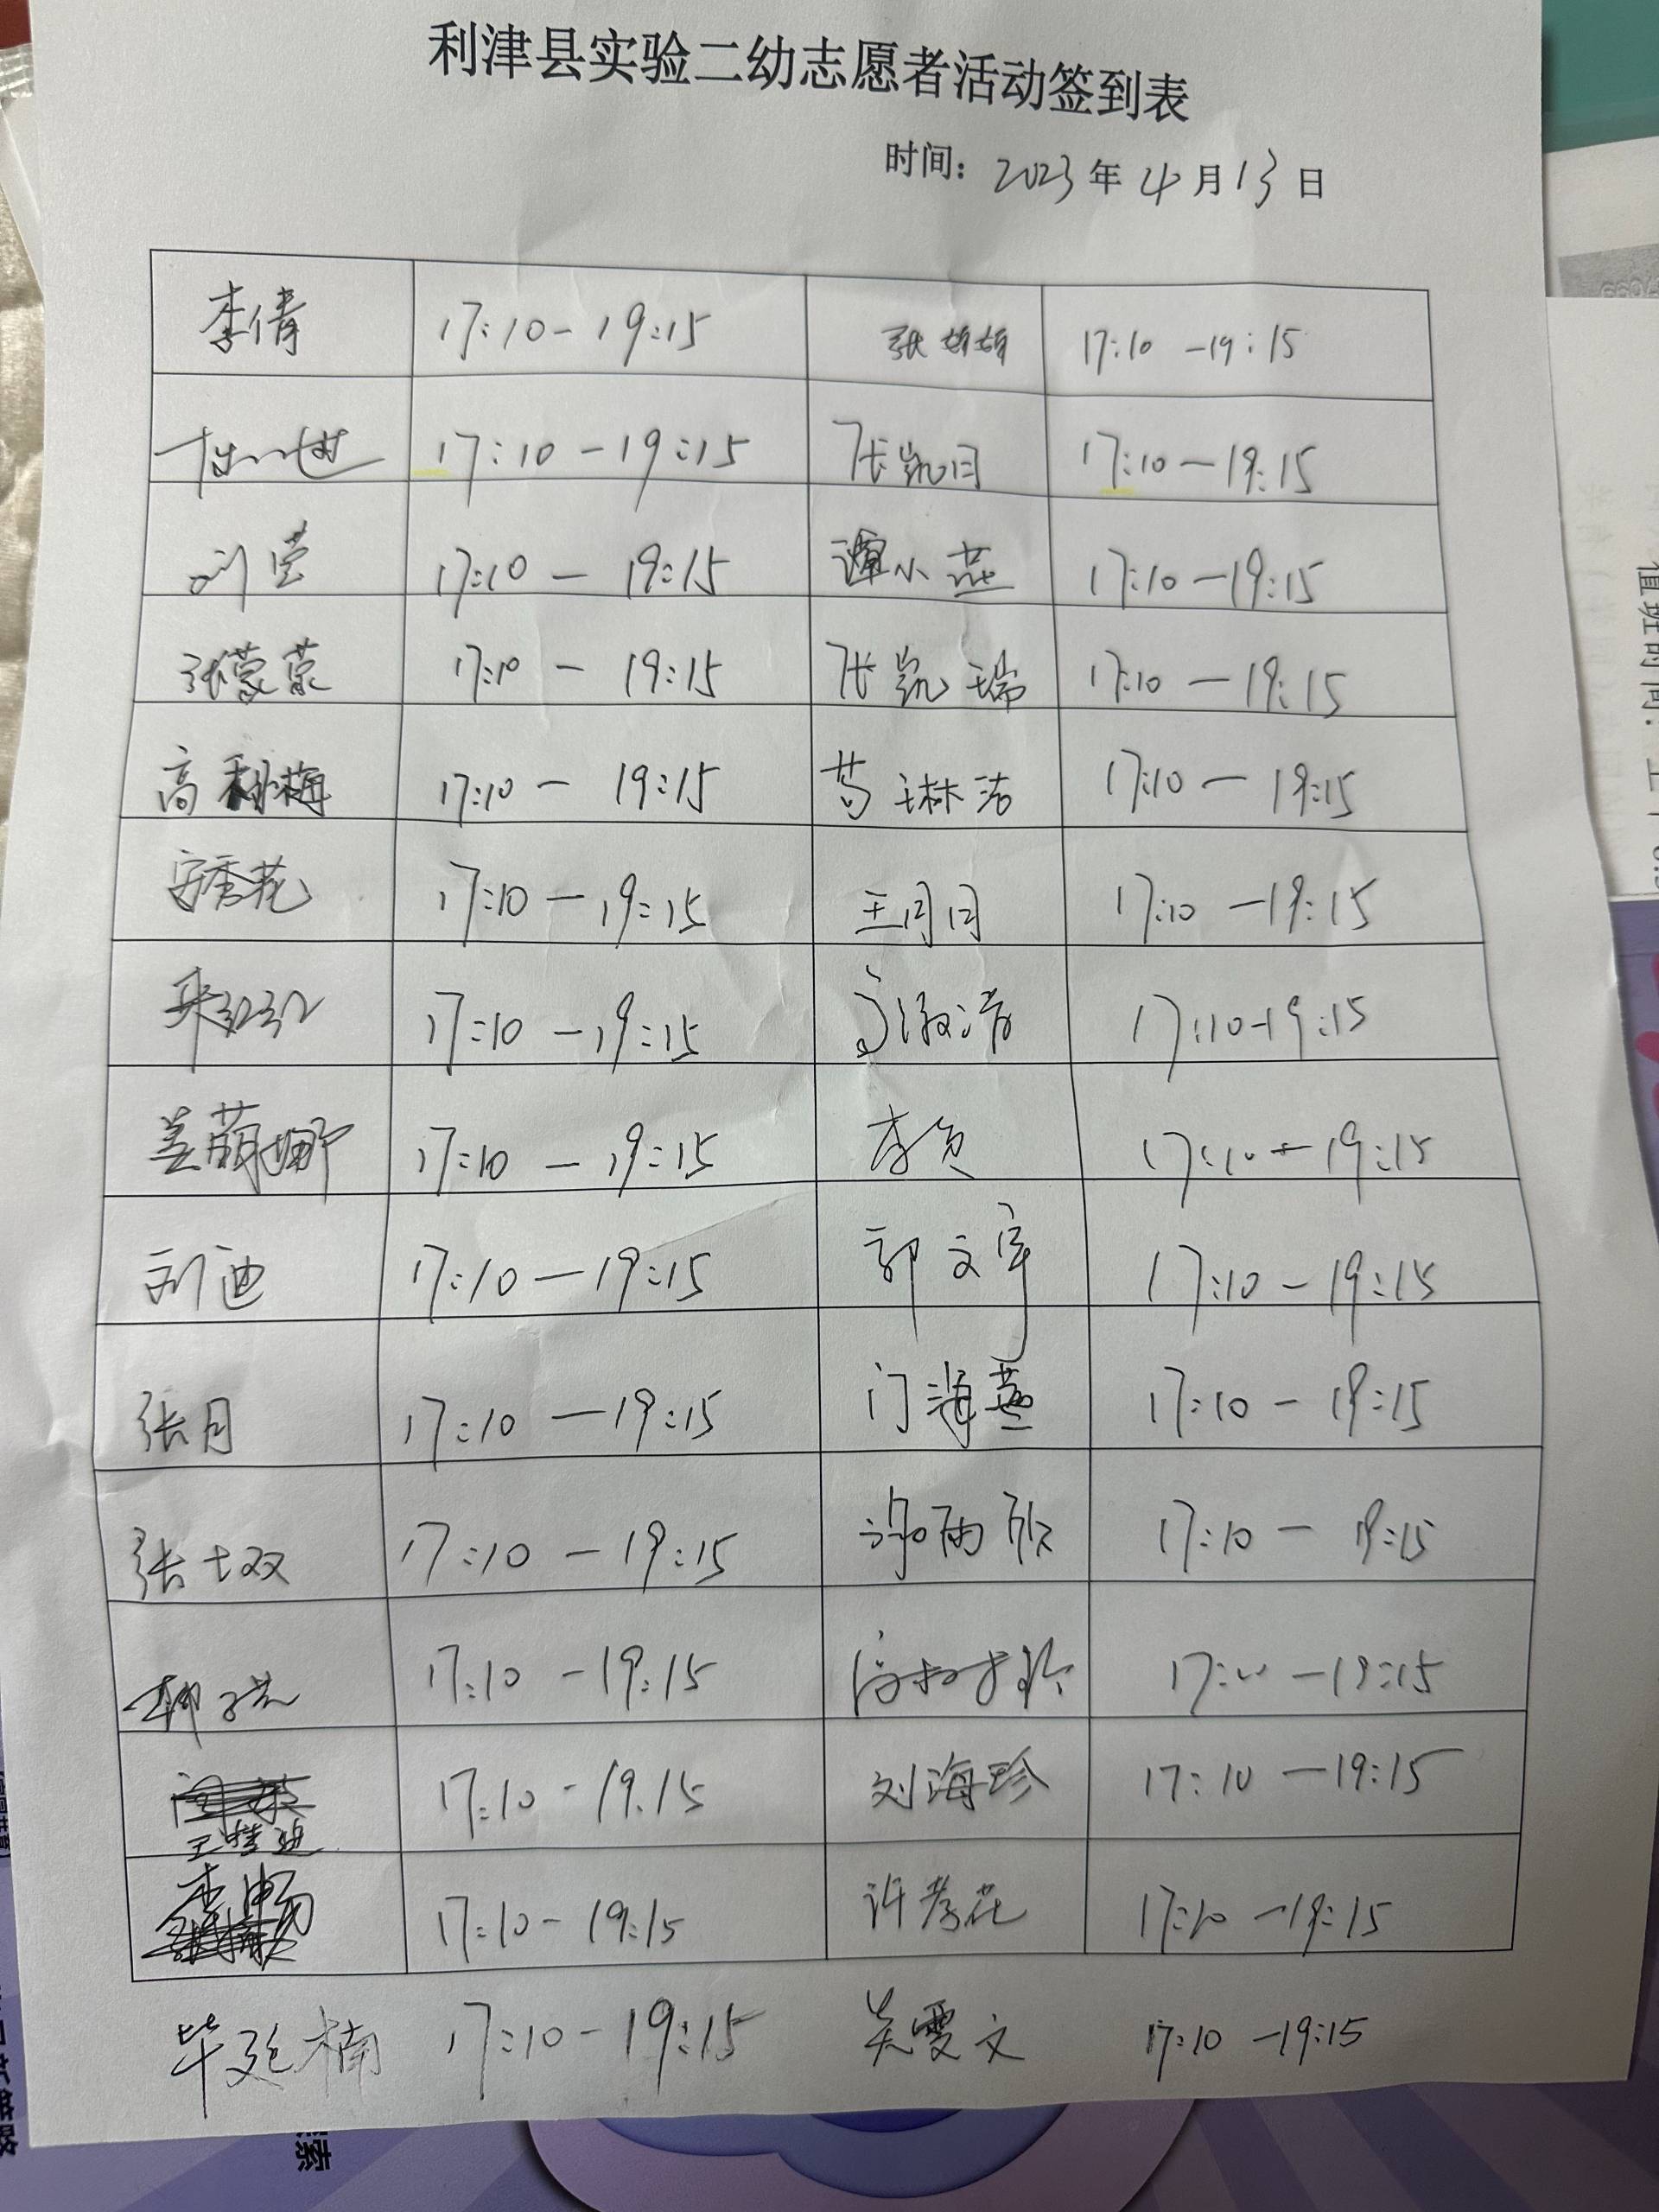 利津县实验二幼志愿者活动签到表
时间: 2023年4月13日
李倩 17:10-19:15 张娇娇 17:10-19:15
17:10-19:15 张凯月 17:10-19:15
刘莹 17:10-19:15 谭小燕 17:10-19:15
张蒙蒙 17:10-19:15 张凯瑞 17:10-19:15
高 梅 17:10-19:15 苟琳洁 17:10-19:15
安秀花 17:10-19:15 王月月 17:10-19:15
17:10-19:15 17:10-19:15
姜萌娜 17:10-19:15 李 17:10-19:15
刘迪 17:10-19:15 郭文宇 17:10-19:15
张月 17:10-19:15 门海燕 17:10-19:15
张士双 17:10-19:15 雨欣 17:10-19:15
17:10-19:15 17:10-19:15
17:10-19:15 刘海珍 17:10-19:15
李 17:10-19:15 许孝花 17:10-19:15
毕延楠 17:10-19:15 吴雯文 17:10-19:15
值班时间:上午